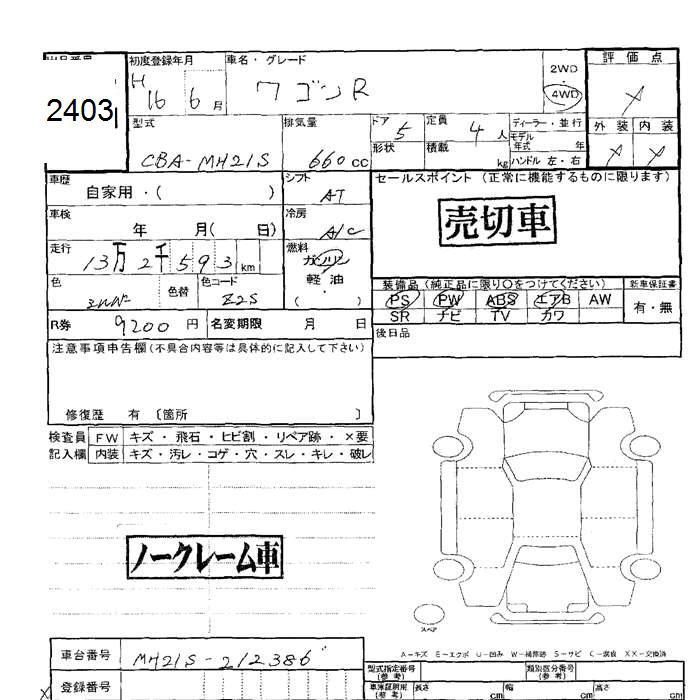 2403
初度登録年月
H 16 6 月
車名・グレード
ワゴンR
2WD
・
4WD
評価点
外装 内装
型式
CBA-MH21S
排気量
660 cc
ドア 5
形状
定員 4 人
積載 kg
ディーラー・並行
モデル年式 年
ハンドル 左・右
車歴
自家用・( )
シフト
AT
セールスポイント (正常に機能するものに限ります)
売切車
車検
年 月( 日)
冷房
A/C
走行
13万2千593 km
燃料
ガソリン
軽油
( ・ )
色
色替
色コード
Z2S
装備品(純正品に限り○をつけてください)
新車保証書
PS PW ABS エアB AW
SR ナビ TV カワ
有・無
R券
9200 円
名変期限 月 日
後日品
注意事項申告欄(不具合内容等は具体的に記入して下さい)
修復歴 有 〔箇所 〕
検査員
記入欄
FW キズ・飛石・ヒビ割・リペア跡・×要
内装 キズ・汚レ・コゲ・穴・スレ・キレ・破レ
ノークレーム車
スペア
A-キズ E-エクボ U-凹み W-補修跡 S-サビ C-腐食 XX-交換済
車台番号
MH21S-212386
登録番号
型式指定番号
(参考)
類別区分番号
(参考)
車庫証明用
(参考)
長さ cm
幅 cm
高さ cm